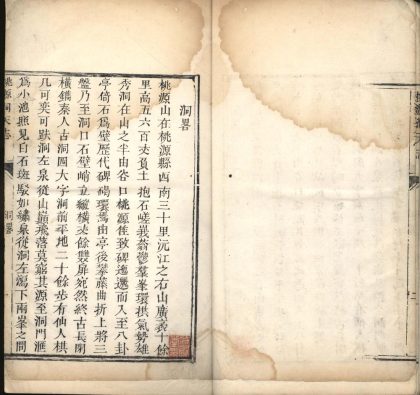 洞畧
桃源山在桃源縣西南三十里沅江之右山廣袤十餘
里高五六百丈負土抱石嵯峩蓊鬱羣峯環拱氣勢雄
秀洞在山之半由谷口桃源佳致碑迤邐而入至八卦
亭倚石壁歷代碑碣環焉由亭後攀藤曲折上將三
盤乃至洞口石壁峭立縱橫丈餘雙扉宛然終古長閉
橫鐫秦人古洞四大字洞前平地二十餘步有仙人棋
几可奕可趺洞左泉從山巔飛落莫窮其源至洞門滙
爲小池照見白石斑駁如繡泉從洞左瀉下兩峯之間
桃源洞天志
洞畧
一